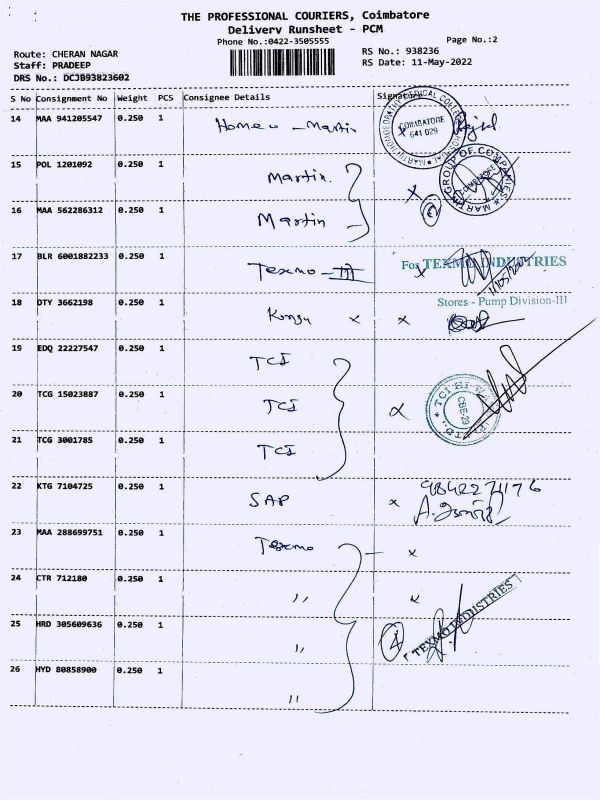 THE PROFESSIONAL COURIERS, Coimbatore
Delivery Runsheet - PCM
Phone No.:0422-3505555
Page No.:2
Route: CHERAN NAGAR
RS No.: 938236
Staff: PRADEEP
RS Date: 11-May-2022
DRS No.: DCJB93823602
S No Consignment No Weight PCS Consignee Details Signature
14 MAA 941205547 0.250 1 Homeo - Martin x
COIMBATORE
641 029
15 POL 1201092 0.250 1 Martin x
MARTIN GROUP OF COMPANIES
COIMBATORE
16 MAA 562286312 0.250 1 Martin 2
17 BLR 6001882233 0.250 1 Texmo - III x
For TEXMO INDUSTRIES
Stores - Pump Division-III
18 DTY 3662198 0.250 1 x x
19 EDQ 22227547 0.250 1 TCI
20 TCG 15023887 0.250 1 TCI x
CBE-29
21 TCG 3001785 0.250 1 TCI
22 KTG 7104725 0.250 1 SAP x
23 MAA 288699751 0.250 1 Texmo - x
24 CTR 712180 0.250 1 ,, x
TEXMO INDUSTRIES
25 HRD 305609636 0.250 1 ,, 4
26 HYD 80858900 0.250 1 ,,